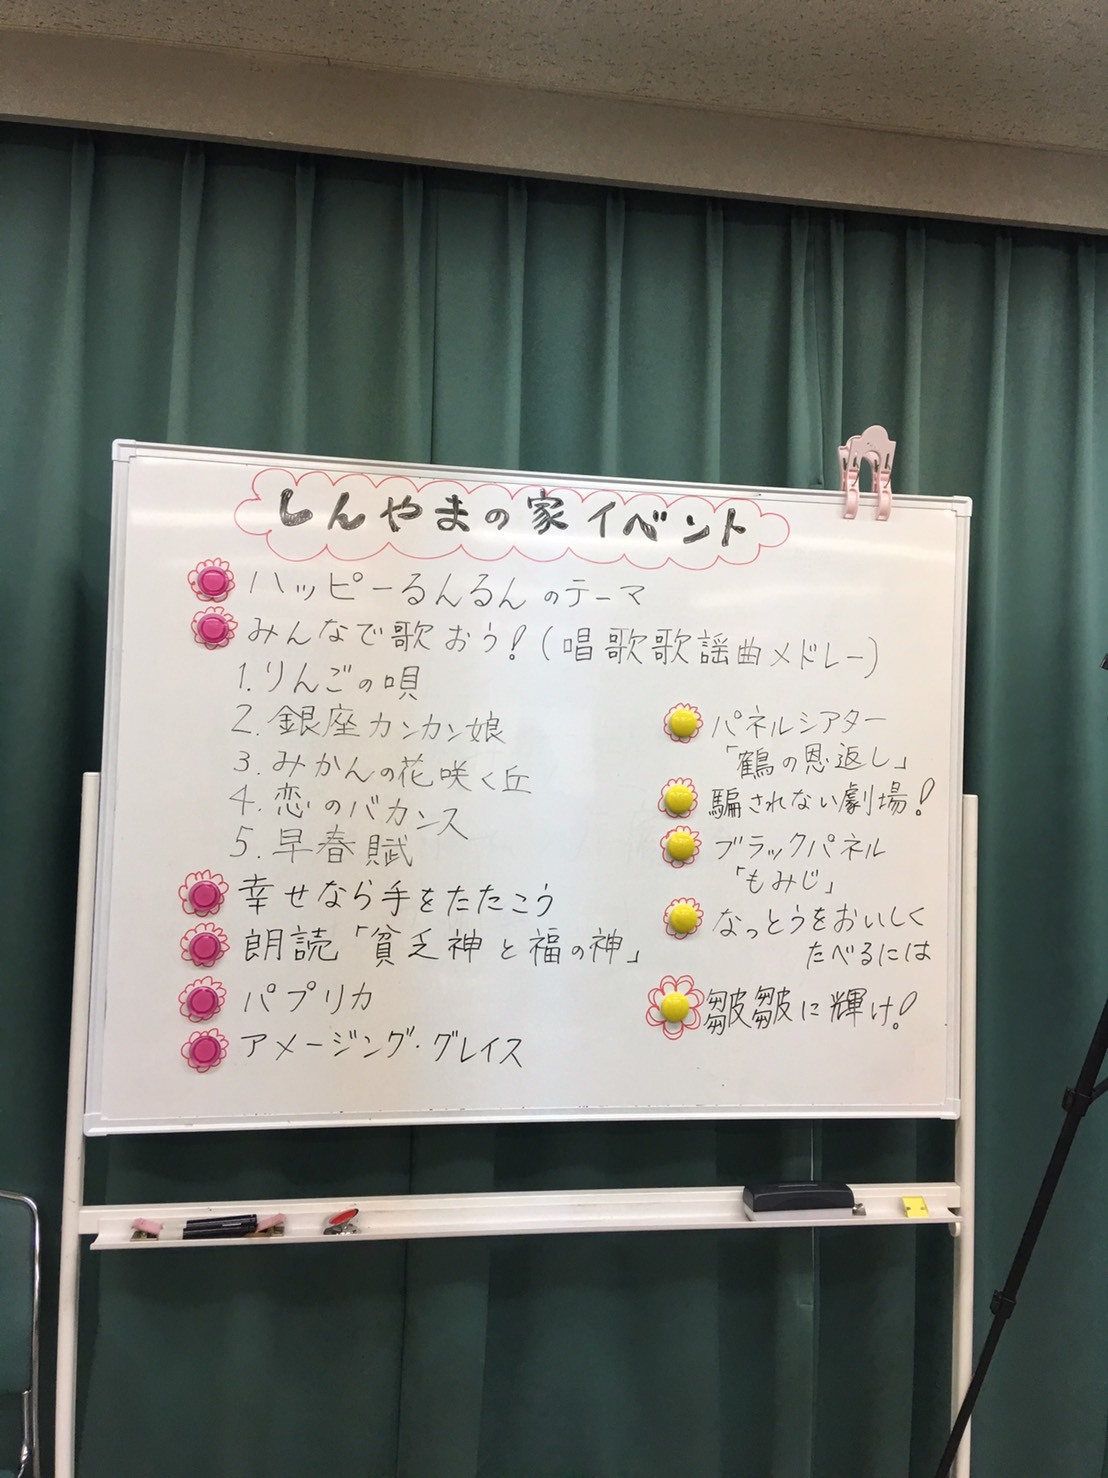 しんやまの家イベント
ハッピーるんるんのテーマ
みんなで歌おう!(唱歌歌謡曲メドレー)
1.りんごの唄
2.銀座カンカン娘
3.みかんの花咲く丘
4.恋のバカンス
5.早春賦
幸せなら手をたたこう
朗読「貧乏神と福の神」
パプリカ
アメージング・グレイス
パネルシアター
「鶴の恩返し」
騙されない劇場!
ブラックパネル
「もみじ」
なっとうをおいしく
たべるには
皺皺に輝け!